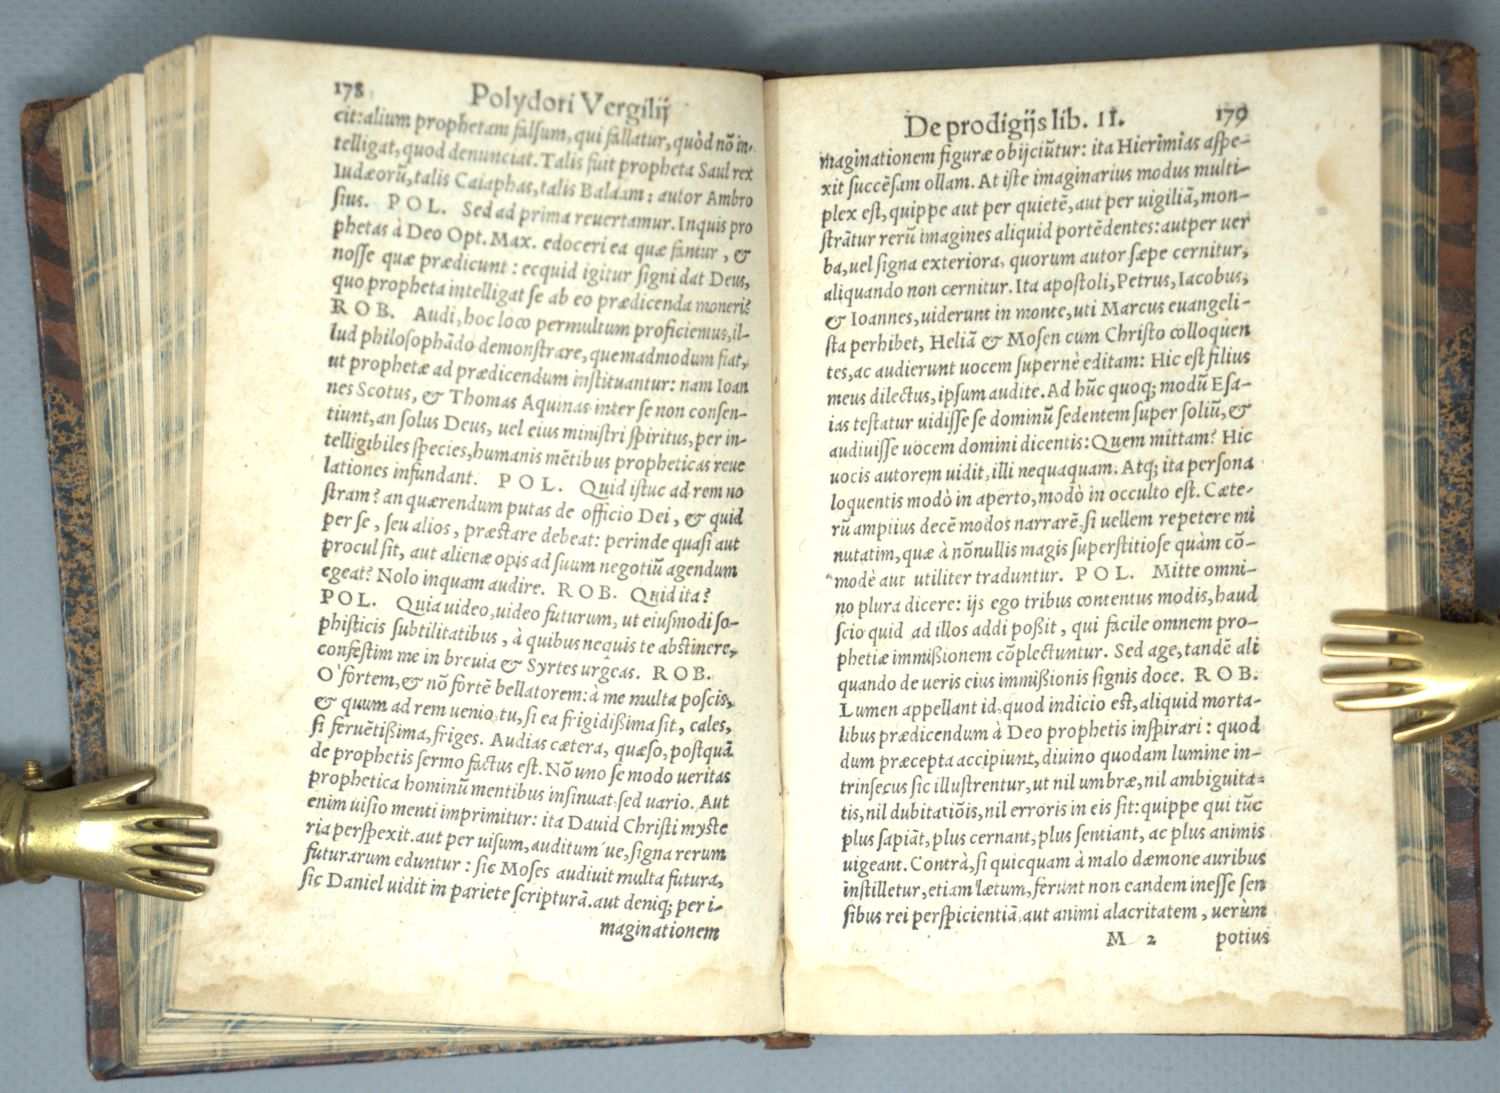 178 Polydori Vergilij
cit: alium prophetam falsum, qui fallatur, quòd nõ in-
telligat, quod denunciat. Talis fuit propheta Saul rex
Iudæorũ, talis Caiaphas, talis Balaam: autor Ambro
sius. POL. Sed ad prima reuertamur. Inquis pro
phetas à Deo Opt. Max. edoceri ea quæ fantur, &
nosse quæ prædicunt: ecquid igitur signi dat Deus,
quo propheta intelligat se ab eo prædicenda moneri?
ROB. Audi, hoc loco permultum proficiemus, il-
lud philosophãdo demonstrare, quemadmodum fiat,
ut prophetæ ad prædicendum instituantur: nam Ioan
nes Scotus, & Thomas Aquinas inter se non consen-
tiunt, an solus Deus, uel eius ministri spiritus, per in-
telligibiles species, humanis mẽtibus propheticas reue
lationes infundant. POL. Quid istuc ad rem no
stram? an quærendum putas de officio Dei, & quid
per se, seu alios, præstare debeat: perinde quasi aut
procul sit, aut alienæ opis ad suum negotiũ agendum
egeat? Nolo inquam audire. ROB. Quid ita?
POL. Quia uideo, uideo futurum, ut eiusmodi so-
phisticis subtilitatibus, à quibus nequis te abstinere,
confestim me in breuia & Syrtes urgeas. ROB.
O' fortem, & nõ fortẽ bellatorem: à me multa poscis,
& quum ad rem uenio, tu, si ea frigidißima sit, cales,
si feruẽtißima, friges. Audias cætera, quæso, postquã
de prophetis sermo factus est. Nõ uno se modo ueritas
prophetica hominũ mentibus insinuat, sed uario. Aut
enim uisio menti imprimitur: ita Dauid Christi myste
ria perspexit. aut per uisum, auditum´ue, signa rerum
futurarum eduntur: sic Moses audiuit multa futura,
sic Daniel uidit in pariete scripturã. aut deniq; per i-
maginationem
De prodigijs lib. II. 179
maginationem figuræ obijciũtur: ita Hierimias aspe-
xit succẽsam ollam. At iste imaginarius modus multi-
plex est, quippe aut per quietẽ, aut per uigiliã, mon-
strãtur rerũ imagines aliquid portẽdentes: aut per uer
ba, uel signa exteriora, quorum autor sæpe cernitur,
aliquando non cernitur. Ita apostoli, Petrus, Iacobus,
& Ioannes, uiderunt in monte, uti Marcus euangeli-
sta perhibet, Heliã & Mosen cum Christo colloquen
tes, ac audierunt uocem supernè editam: Hic est filius
meus dilectus, ipsum audite. Ad hũc quoq; modũ Esa-
ias testatur uidisse se dominũ sedentem super soliũ, &
audiuisse uocem domini dicentis: Quem mittam? Hic
uocis autorem uidit, illi nequaquam. Atq; ita persona
loquentis modò in aperto, modò in occulto est. Cæte-
rũ amplius decẽ modos narrarẽ, si uellem repetere mi
nutatim, quæ à nõnullis magis superstitiose quàm cõ-
modè aut utiliter traduntur. POL. Mitte omni-
no plura dicere: ijs ego tribus contentus modis, haud
scio quid ad illos addi poßit, qui facile omnem pro-
phetiæ immißionem cõplectuntur. Sed age, tandẽ ali
quando de ueris eius immißionis signis doce. ROB.
Lumen appellant id, quod indicio est, aliquid morta-
libus prædicendum à Deo prophetis inspirari: quod
dum præcepta accipiunt, diuino quodam lumine in-
trinsecus sic illustrentur, ut nil umbræ, nil ambiguita-
tis, nil dubitatiõis, nil erroris in eis sit: quippe qui tũc
plus sapiãt, plus cernant, plus sentiant, ac plus animis
uigeant. Contrà, si quicquam à malo dæmone auribus
instilletur, etiam lætum, ferunt non eandem inesse sen
sibus rei perspicientiã, aut animi alacritatem, uerùm
M 2 potius